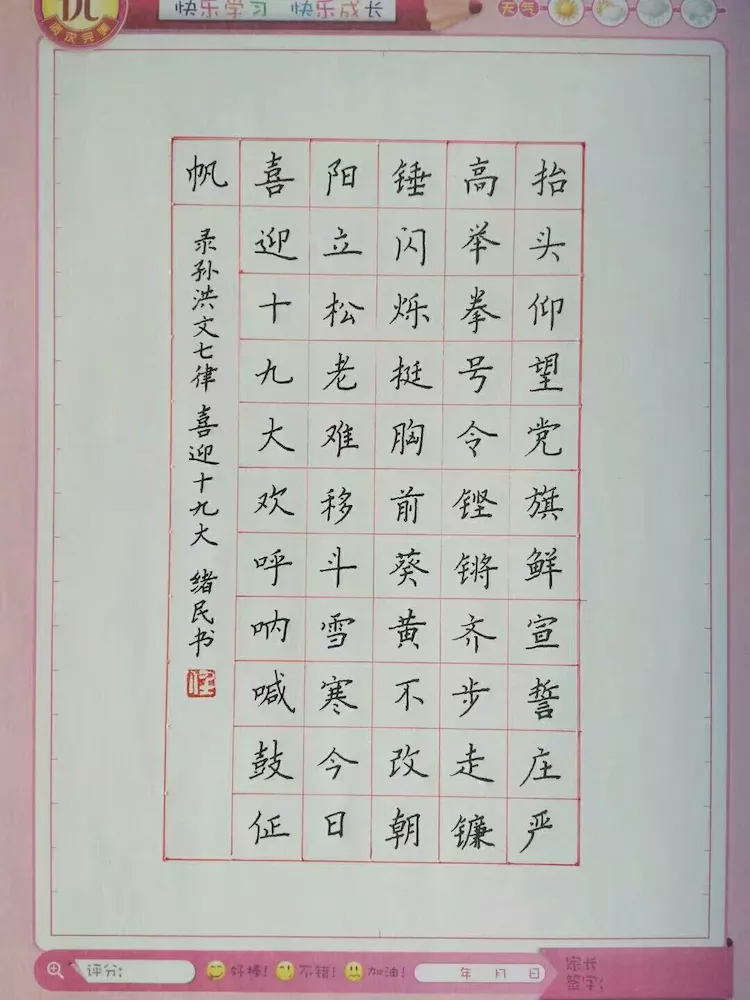 快乐学习 快乐成长
天气
抬头仰望党旗鲜宣誓庄严
高举拳号令铿锵齐步走镰
锤闪烁挺胸前葵黄不改朝
阳立松老难移斗雪寒今日
喜迎十九大欢呼呐喊鼓征
帆
录孙洪文七律 喜迎十九大 绪民书
评分:
好棒!
不错!
加油!
年 月 日
家长
签字: